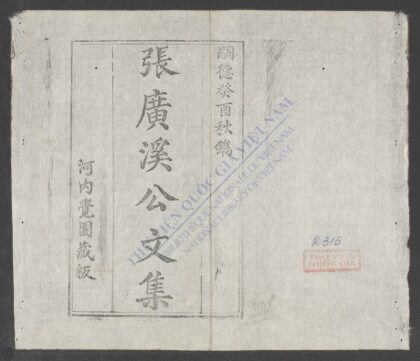 嗣德癸酉秋鐫
張廣溪公文集
河内覺園藏板
THƯ VIỆN QUỐC GIA VIỆT NAM
BIBLIOTHÈQUE NATIONALE DU VIETNAM
NATIONAL LIBRARY OF VIETNAM
R.316
THƯ VIỆN
QUỐC GIA